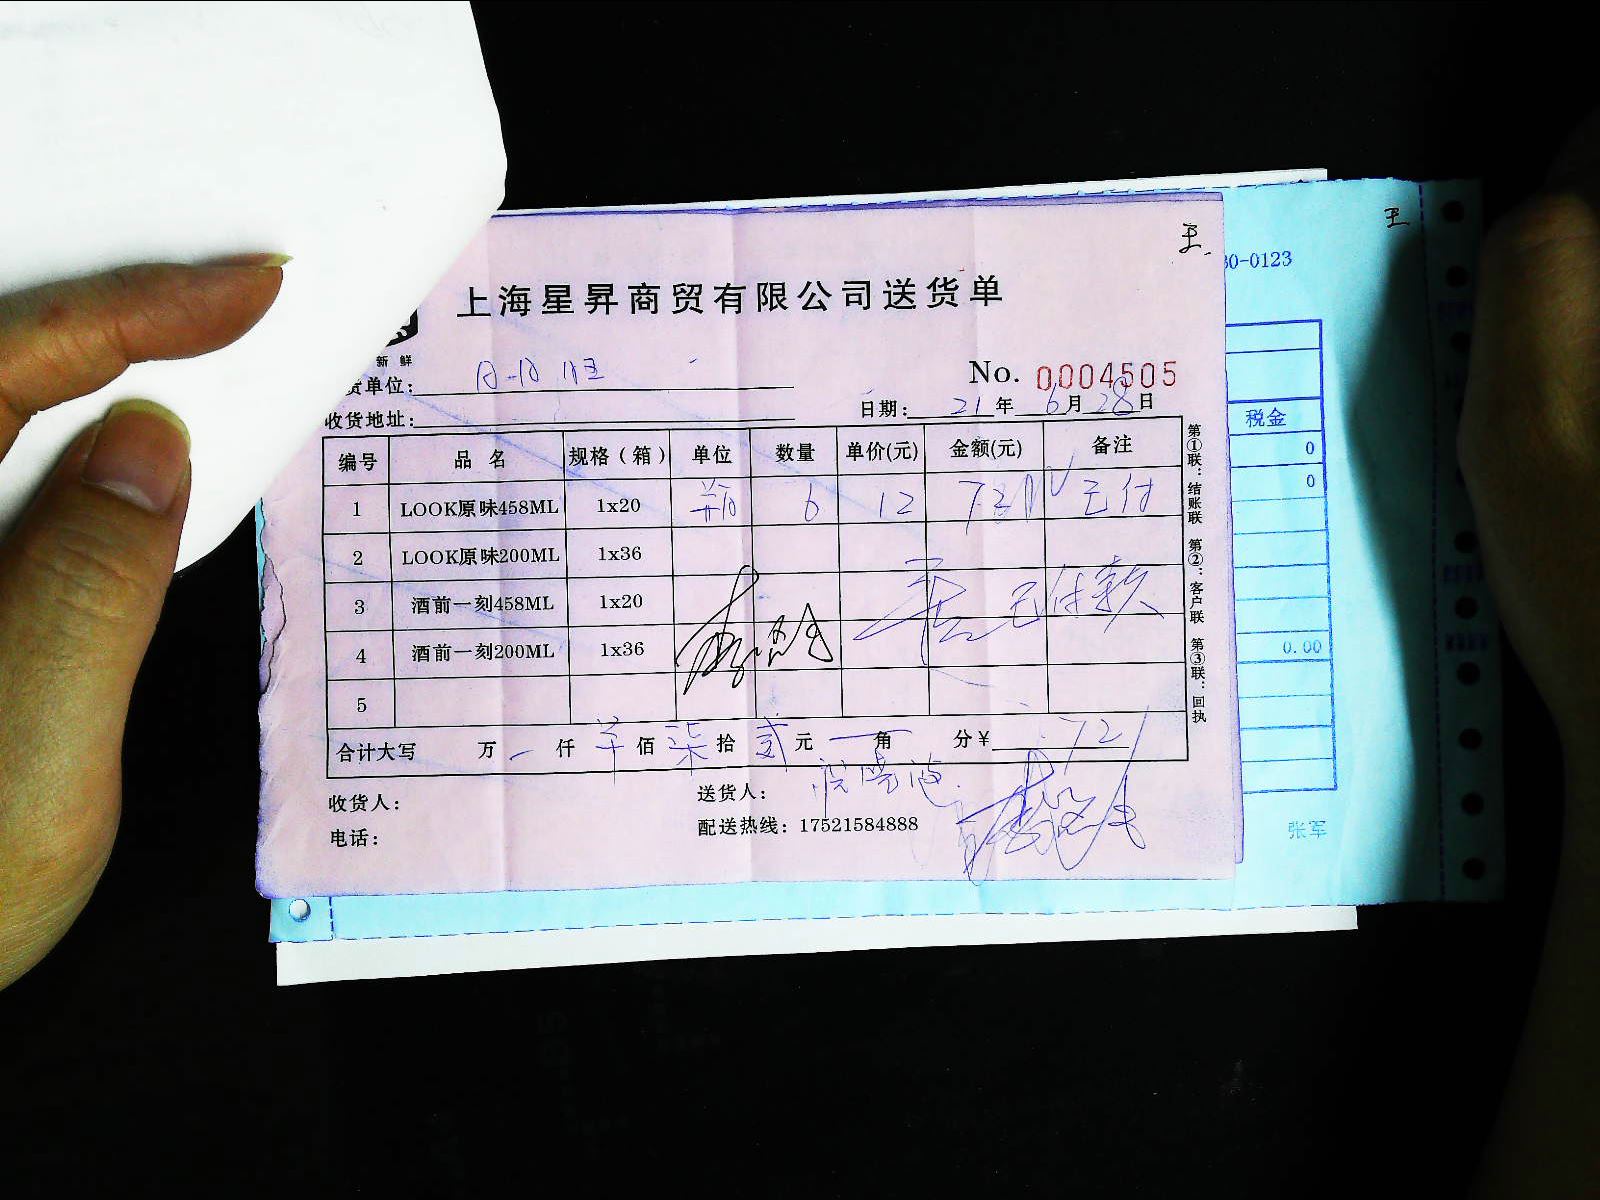 上海星昇商贸有限公司送货单
新鲜
货单位：
No. 0004505
收货地址：
日期： 21 年 6 月 28 日
编号 品名 规格（箱） 单位 数量 单价(元) 金额(元) 备注
1 LOOK原味458ML 1x20 瓶 6 12 72 已付
2 LOOK原味200ML 1x36
3 酒前一刻458ML 1x20 已付款
4 酒前一刻200ML 1x36
5
合计大写 万 仟 佰 柒 拾 贰 元 角 分￥ 72
收货人：
送货人：
电话：
配送热线：17521584888
第①联：结账联 第②：客户联 第③联：回执
30-0123
税金
0
0
0.00
张军